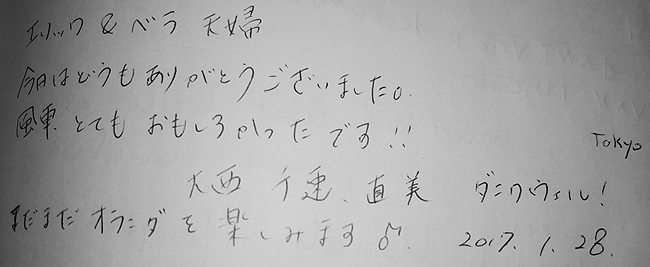 エリック & ベラ 夫婦
今日はどうもありがとうございました。
風車 とても おもしろかった です!!
Tokyo
大西 、直美 ダンクウェル!
まだまだ オランダを 楽しみます♪.
2017. 1. 28.